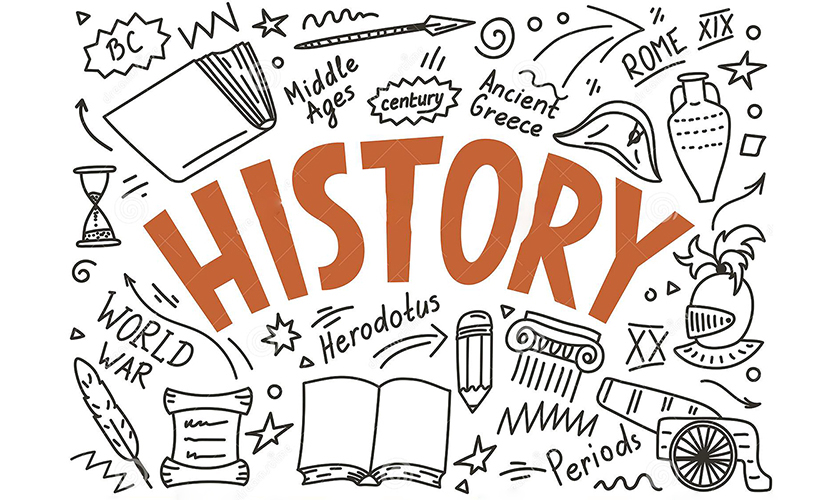 BC
Middle
Ages
century
Ancient
Greece
ROME XIX
HISTORY
WORLD
WAR
Herodotus
XX
Periods